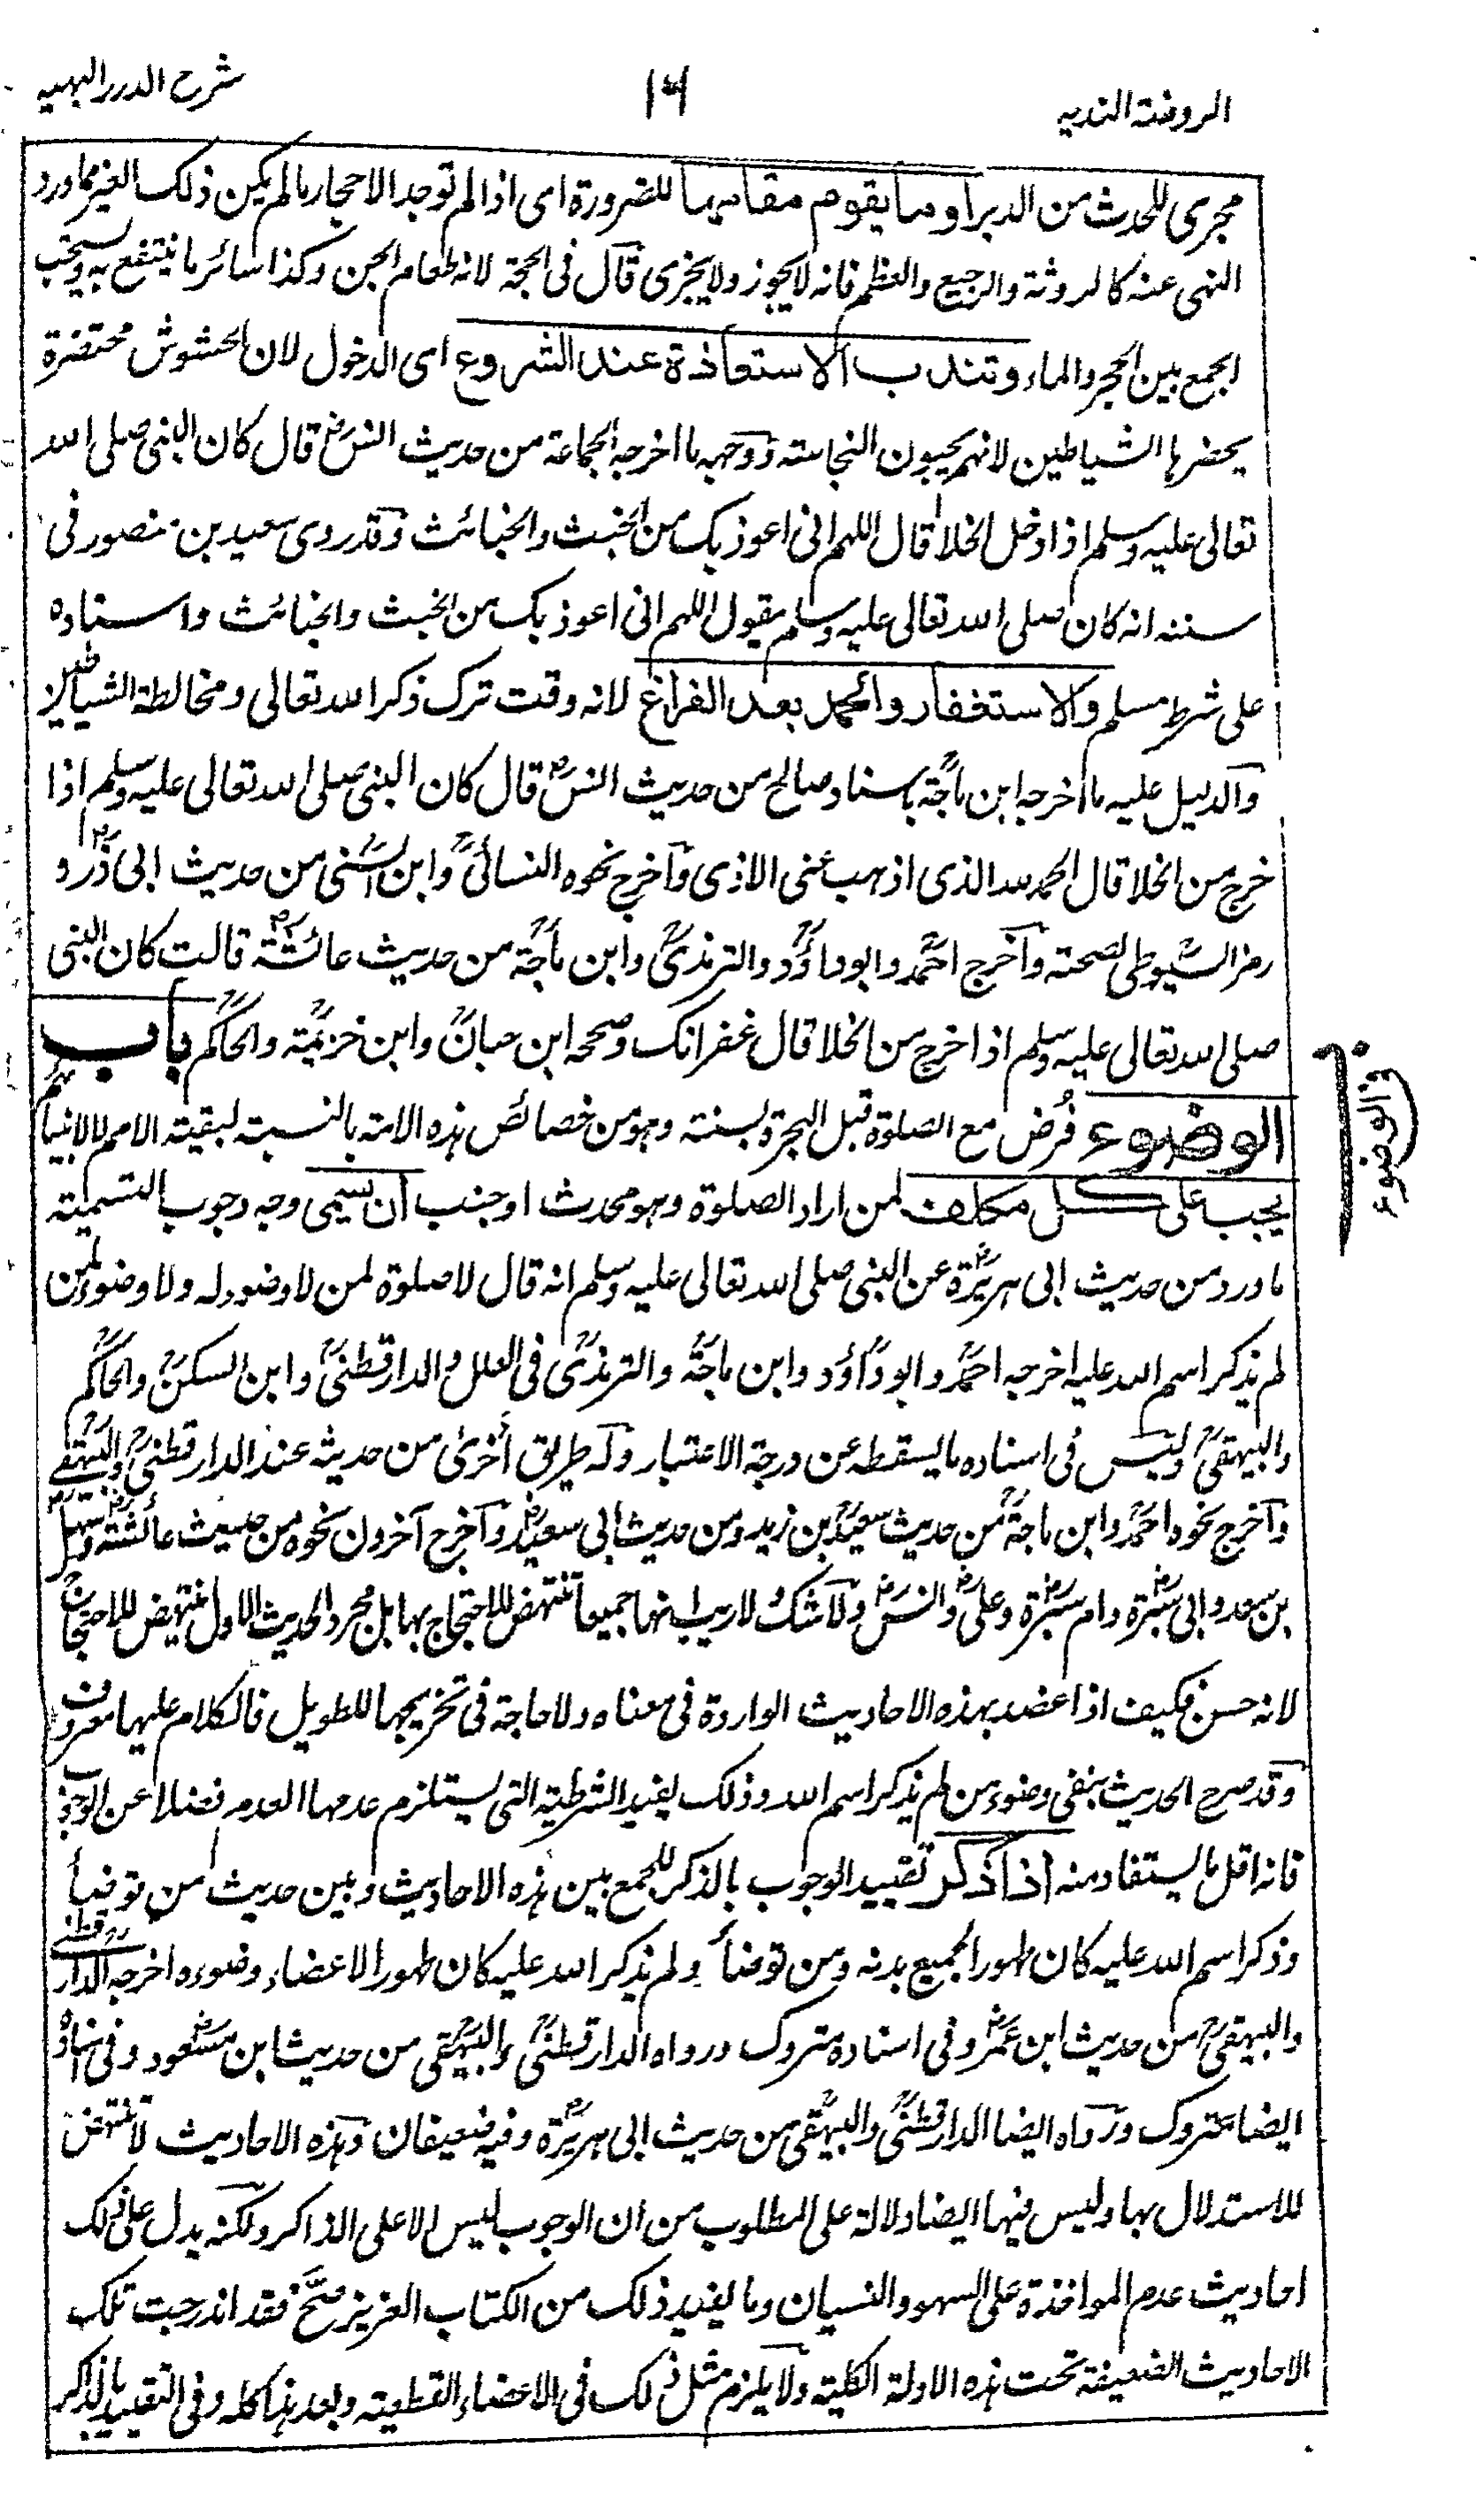 الروضة الندیه
۱۶
شرح الدرر البهیه
مجری للحدث من الدبر او ما یقوم مقامها للضرورة ای اذا لم توجد الاحجار ما لم یکن ذلک الغیر مما ورد
النهی عنه کالروثة والرجیع والعظم فانه لا یجوز ولا یجزی قال فی الحجة لانه طعام الجن وکذا سائر ما ینتفع به ویستحب
الجمع بین الحجر والماء وتندب الاستعاذة عند الشروع ای الدخول لان الحشوش محتضرة
یحضرها الشیاطین لانهم یحبون النجاسة ووجهه ما اخرجه الجماعة من حدیث انسؓ قال کان النبی صلی الله
تعالی علیه وسلم اذا دخل الخلا قال اللهم انی اعوذ بک من الخبث والخبائث وقد روی سعید بن منصور فی
سننه انه کان صلی الله تعالی علیه وسلم یقول اللهم انی اعوذ بک من الخبث والخبائث واسناده
علی شرط مسلم والاستغفار والحمد بعد الفراغ لانه وقت ترک ذکر الله تعالی ومخالطة الشیاطین
والدلیل علیه ما اخرجه ابن ماجة باسناد صالح من حدیث انسؓ قال کان النبی صلی الله تعالی علیه وسلم اذا
خرج من الخلا قال الحمد لله الذی اذهب عنی الاذی واخرج نحوه النسائیؒ وابن السنی من حدیث ابی ذرؓ و
رمز السیوطی لصحته واخرج احمد وابوداؤد والترمذیؒ وابن ماجة من حدیث عائشةؓ قالت کان النبی
صلی الله تعالی علیه وسلم اذا خرج من الخلا قال غفرانک وصححه ابن حبانؒ وابن خزیمة والحاکم باب
الوضوء فُرض مع الصلوة قبل الهجرة بسنة وهو من خصائص هذه الامة بالنسبة لبقیة الامم لا لانبیائهم
فی الوضوء
یجب علی کل مکلف لمن اراد الصلوة وهو محدث او جنب ان یسمی وجه وجوب التسمیة
ما ورد من حدیث ابی هریرةؓ عن النبی صلی الله تعالی علیه وسلم انه قال لا صلوة لمن لا وضوء له ولا وضوء لمن
لم یذکر اسم الله علیه اخرجه احمدؒ وابوداؤد وابن ماجة والترمذیؒ فی العلل والدارقطنیؒ وابن السکنؒ والحاکم
والبیهقیؒ ولیس فی اسناده ما یسقطه عن درجة الاعتبار وله طریق اُخری من حدیثه عند الدارقطنیؒ والبیهقی
واخرج نحوه احمدؒ وابن ماجةؒ من حدیث سعیدؓ بن زید ومن حدیث ابی سعیدؓ واخرج آخرون نحوه من حدیث عائشةؓ وسهلؓ
بن سعد وابی سبرةؓ وام سبرةؓ وعلیؓ وانسؓ ولا شک ولا ریب انها جمیعا تنتهض للاحتجاج بها بل مجرد الحدیث الاول ینتهض للاحتجاج
لانه حسن فکیف اذا عضد بهذه الاحادیث الواردة فی معناه ولا حاجة فی تخریجها للطویل فالکلام علیها معروف
وقد صرح الحدیث بنفی وضوء من لم یذکر اسم الله وذلک یفید الشرطیة التی یستلزم عدمها العدم فضلا عن الوجوب
فانه اقل ما یستفاد منه اذا ذکر تقیید الوجوب بالذکر للجمع بین هذه الاحادیث وبین حدیث من توضأ
وذکر اسم الله علیه کان طهورا لجمیع بدنه ومن توضأ ولم یذکر الله علیه کان طهورا لاعضاء وضوءه اخرجه الدارقطنی
والبیهقیؒ من حدیث ابن عمرؓ وفی اسناده متروک ورواه الدارقطنیؒ والبیهقی من حدیث ابن مسعود وفی اسناده
ایضا متروک ورواه ایضا الدارقطنیؒ والبیهقی من حدیث ابی هریرةؓ وفیه ضعیفان وهذه الاحادیث لا تنتهض
للاستدلال بها ولیس فیها ایضا دلالة علی المطلوب من ان الوجوب لیس الا علی الذاکر ولکنه یدل علی ذلک
احادیث عدم المواخذة علی السهو والنسیان وما یفید ذلک من الکتاب العزیز فقد اندرجت تلک
الاحادیث الضعیفة تحت هذه الادلة الکلیة ولا یلزم مثل ذلک فی الاعضاء القطعیة وبعد هذا کله وفی التقیید بالذکر